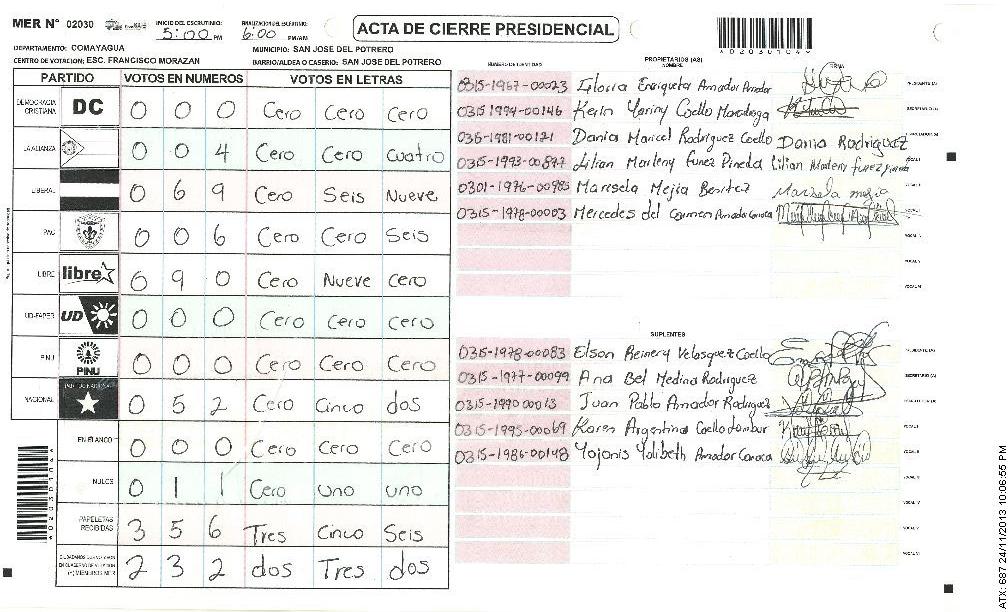 MER N° 02030 INICIO DEL ESCRUTINIO: 5:00 PM FINALIZACION DEL ESCRUTINIO: 6:00 PM/AM
ACTA DE CIERRE PRESIDENCIAL
A02030104A
DEPARTAMENTO: COMAYAGUA MUNICIPIO: SAN JOSE DEL POTRERO
CENTRO DE VOTACION: ESC. FRANCISCO MORAZAN BARRIO/ALDEA O CASERIO: SAN JOSE DEL POTRERO
PARTIDO VOTOS EN NUMEROS VOTOS EN LETRAS
DEMOCRACIA CRISTIANA DC 0 0 0 Cero Cero Cero
LA ALIANZA 0 0 4 Cero Cero Cuatro
LIBERAL 0 6 9 Cero Seis Nueve
PAC 0 0 6 Cero Cero Seis
LIBRE libre 6 9 0 Cero Nueve Cero
UD-FAPER UD 0 0 0 Cero Cero Cero
PINU PINU 0 0 0 Cero Cero Cero
NACIONAL PARTIDO NACIONAL 0 5 2 Cero Cinco dos
EN BLANCO 0 0 0 Cero Cero Cero
NULOS 0 1 1 Cero uno uno
PAPELETAS RECIBIDAS 3 5 6 Tres Cinco Seis
2 3 2 dos Tres dos
A02030104A
PROPIETARIOS (AS)
NUMERO DE IDENTIDAD NOMBRE FIRMA
0315-1967-00023 Gloria Enriqueta Amador Amador PRESIDENTE (A)
0315 1994-00146 Kerin Yaniny Coello SECRETARIO (A)
0315-1981-00121 Dania Maricel Rodriguez Coello Dania Rodriguez ESCRUTADOR (A)
0315-1993-00877 Lilian Marleny Funez Pineda Lilian Marleny funez pineda VOCAL I
0301-1976-00985 Marisela Mejia Benitez Marisela mejia VOCAL II
0315-1978-00003 Mercedes del Carmen Amador
VOCAL IV
VOCAL V
VOCAL VI
SUPLENTES
0315-1978-00083 Elson Reinery Velasquez Coello PRESIDENTE (A)
0315-1977-00099 Ana Bel Medina Rodriguez SECRETARIO (A)
0315-1990 00013 Juan Pablo Amador Rodriguez ESCRUTADOR (A)
0315-1995-00069 Karen Argentina Coello VOCAL I
0315-1986-00148 Yojonis Yolibeth Amador VOCAL II
VOCAL III
VOCAL IV
VOCAL V
VOCAL VI
ATX: 687 24/11/2013 10:06:55 PM